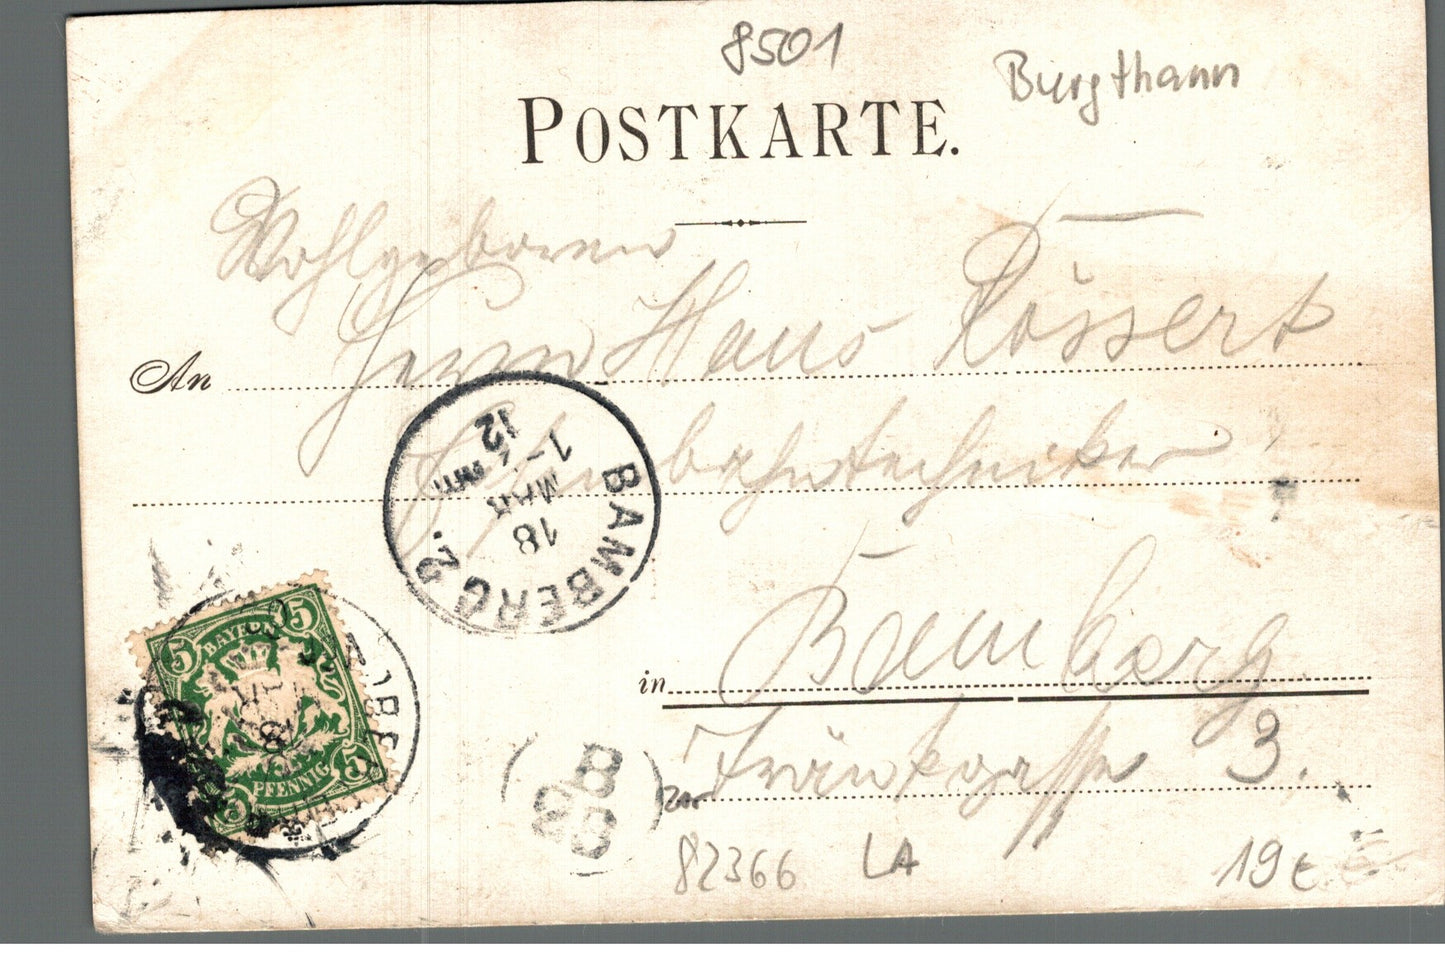 8501
Burgthann
POSTKARTE.
Wohlgeboren
An Herrn Hans Rössert
Eisenbahntechniker
in Bamberg.
Frankgasse 3.
BAMBERG 2.
18
MAR
1-
12
5 BAYERN 5
5 PFENNIG 5
82366 LA 19 €